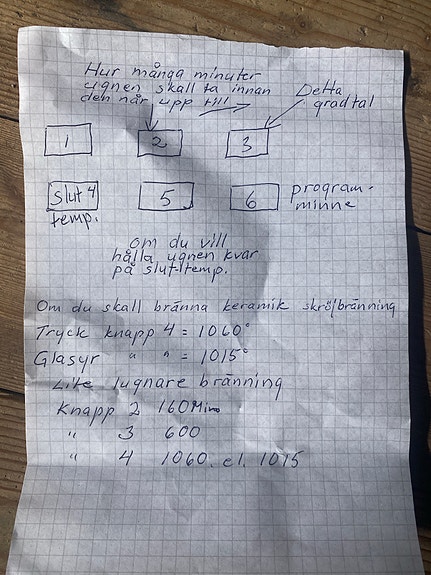 Hur många minuter
ugnen skall ta innan
den når upp till
Detta
gradtal
1 2 3
Slut 4 5 6 program-
temp. minne
om du vill
hålla ugnen kvar
på slut-temp.
Om du skall bränna keramik skröjbränning
Tryck knapp 4 = 1060°
Glasyr " " = 1015°
Lite lugnare bränning
Knapp 2 160 Min
" 3 600
" 4 1060. el. 1015